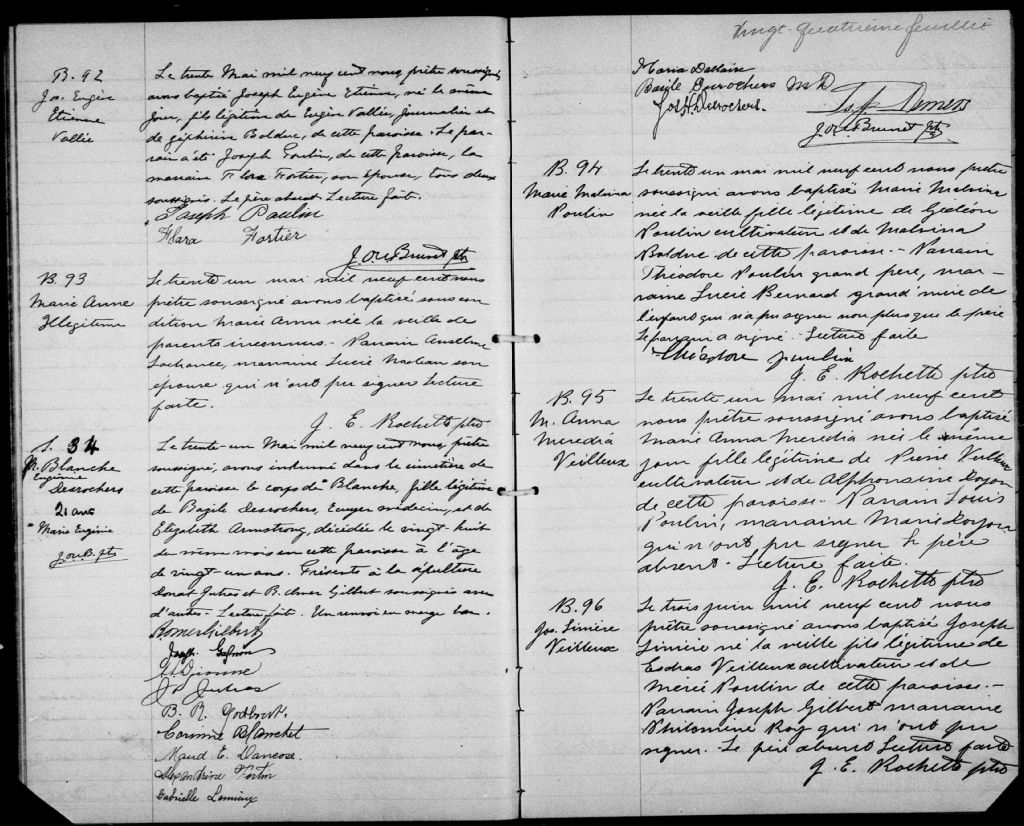 B. 92
Jos. Eugène
Etienne
Vallée
Le trente Mai mil neuf cent nous, prêtre soussigné,
avons baptisé Joseph Eugène Etienne, né le même
jour, fils légitime de Eugène Vallée, Journalier et
de Zéphirine Bolduc, de cette paroisse. Le par-
rain a été Joseph Poulin, de cette paroisse, la
marraine Flora Fortier, son épouse, tous deux
soussignés. Le père absent. Lecture faite.
Joseph Paulin
Flora Fortier
J. O. Brunet ptr
B. 93
Marie Anne
Illégitime
Le trente un mai mil neuf cent nous
prêtre soussigné avons baptisé sous con
dition Marie Anne née la veille de
parents inconnus. - Parrain Anselme
Lachance, marraine Lucie Nadeau son
épouse qui n'ont pu signer Lecture
faite.
J. E. Rochette ptre
S. 34
M. Blanche
Eugénie
Desrochers
21 ans
" Marie Eugénie
J O B. ptr
Le trente-un Mai mil neuf cent nous, prêtre
soussigné, avons inhumé dans le cimetière de
cette paroisse le corps de " Blanche, fille légitime
de Bazile Desrochers, Ecuyer médecin, et de
Elizabeth Armstrong, décédée le vingt-huit
du même mois en cette paroisse à l'âge
de vingt-un ans. Présents à la sépulture
Donat Jutras et B. Omer Gilbert soussignés avec
d'autres. Lecture faite. Un renvoi en marge bon.
B Omer Gilbert
Joseph Gagnon
Dionne
Jutras
B. R. Godbout.
Corinne Blanchet
Maud E. Dancose.
Alexandrine Fortin
Gabrielle Lemieux
Vingt-quatrième feuillet
Maria Dallaire
Bazile Desrochers M D
Jos H. Desrochers.
Demers
J. O. Brunet ptr
B. 94
Marie Malvina
Poulin
Le trente un mai mil neuf cent nous prêtre
soussigné avons baptisé Marie Malvina
née la veille fille légitime de Gédéon
Poulin cultivateur et de Malvina
Bolduc de cette paroisse. - Parrain
Théodore Poulin grand père, mar-
raine Lucie Bernard grand'mère de
l'enfant qui n'a pu signer non plus que le père
Le parrain a signé. - Lecture faite
Théodore poulin
J. E. Rochette ptre
B. 95
M. Anna
Meredia
Veilleux
Le trente un mai mil neuf cent
nous prêtre soussigné avons baptisé
Marie Anna Meredia née le même
jour fille légitime de Pierre Veilleux
cultivateur et de Alphonsine Doyon
de cette paroisse. Parrain Louis
Poulin, marraine Marie Doyon
qui n'ont pu signer le père
absent. Lecture faite.
J. E. Rochette ptre
B. 96
Jos. Simère
Veilleux
Le trois juin mil neuf cent nous
prêtre soussigné avons baptisé Joseph
Simère né la veille fils légitime de
Esdras Veilleux cultivateur et de
Poulin de cette paroisse. -
Parrain Joseph Gilbert marraine
Philomène Roy qui n'ont pu
signer. Le père absent Lecture faite
J. E. Rochette ptre